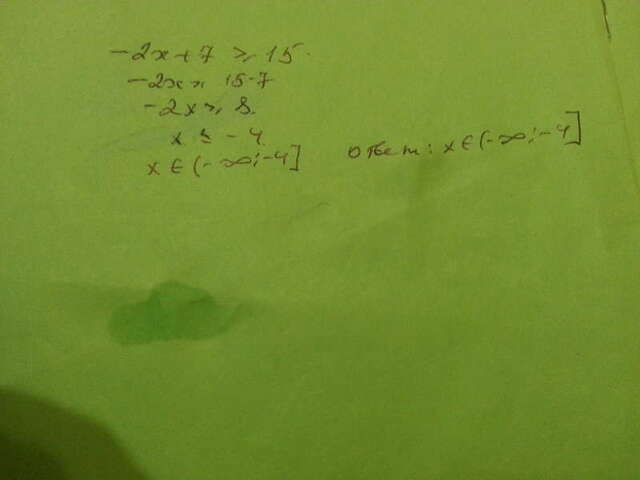 -2x+7 ≥ 15.
-2x ≥ 15-7
-2x ≥ 8.
x ≤ -4.
x ∈ (-∞; -4]
Ответ: x ∈ (-∞; -4]